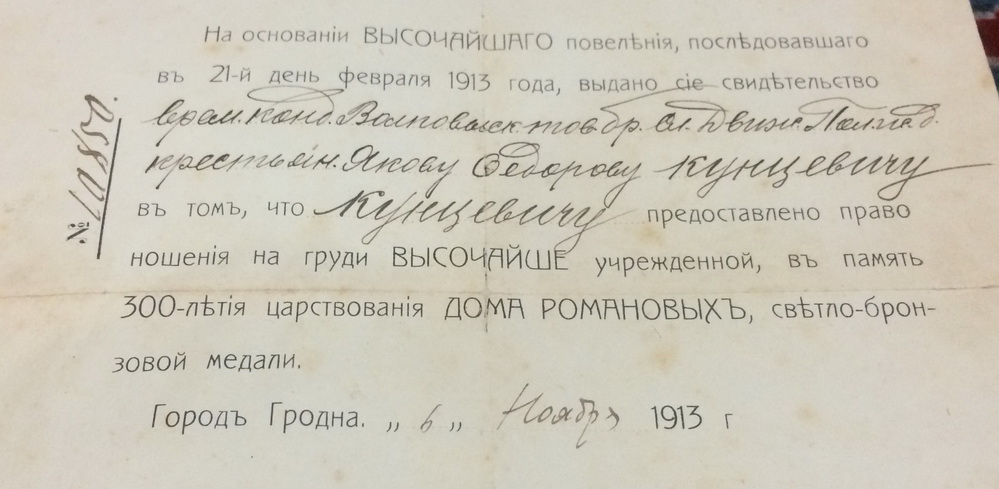 На основаніи ВЫСОЧАЙШАГО повелѣнія, послѣдовавшаго
въ 21-й день февраля 1913 года, выдано сіе свидѣтельство
врем. конд. Волковыск тов. бр. Сл. Движ.
крестьян. Якову Ѳедорову Кунцевичу
въ томъ, что Кунцевичу предоставлено право
ношенія на груди ВЫСОЧАЙШЕ учрежденной, въ память
300-лѣтія царствованія ДОМА РОМАНОВЫХЪ, свѣтло-брон-
зовой медали.
Городъ Гродна. „ 6 „ Ноября 1913 г
№